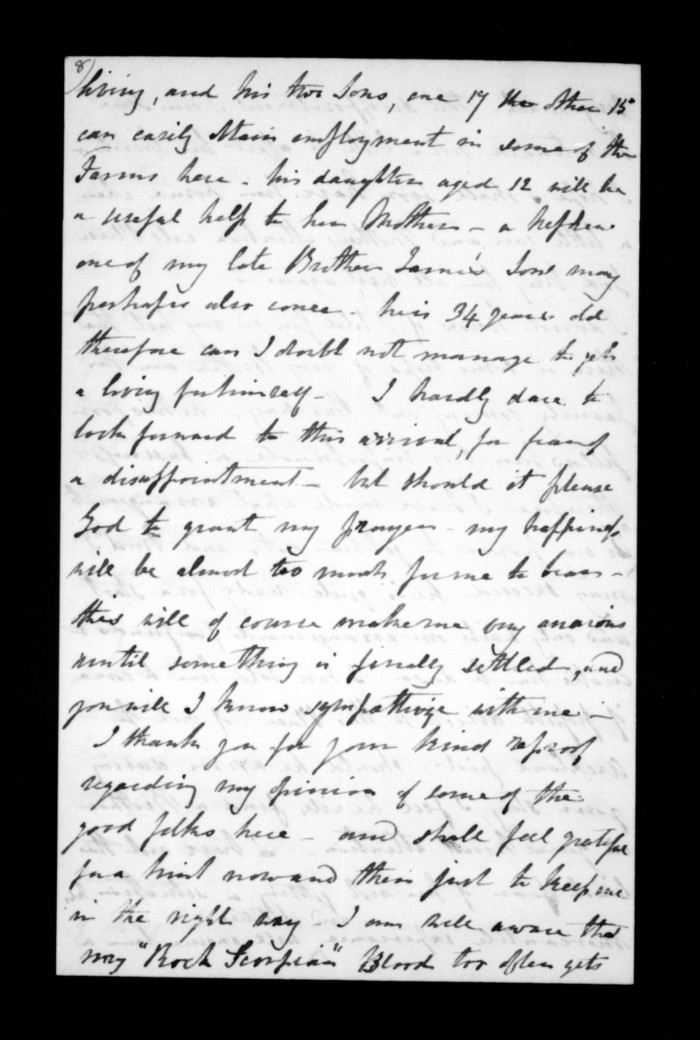 8)
living, and his two Sons, one 17 the other 15
can easily obtain employment in some of the
Farms here - his daughter aged 12 will be
a useful help to her Mother - a nephew
one of my late Brother James' Sons may
perhaps also come - he is 34 years old
therefore can I doubt not manage to get
a living for himself - I hardly dare to
look forward to this arrival, for fear of
a disappointment - but should it please
God to grant my prayers - my happiness
will be almost too much for me to bear -
this will of course make me very anxious
until something is finally settled, and
you will I know sympathize with me -
I thank you for your kind reproof
regarding my opinion of some of the
good folks here - and shall feel grateful
for a hint now and then just to keep me
in the right way - I am well aware that
my "Rock Scorpian" Blood too often gets